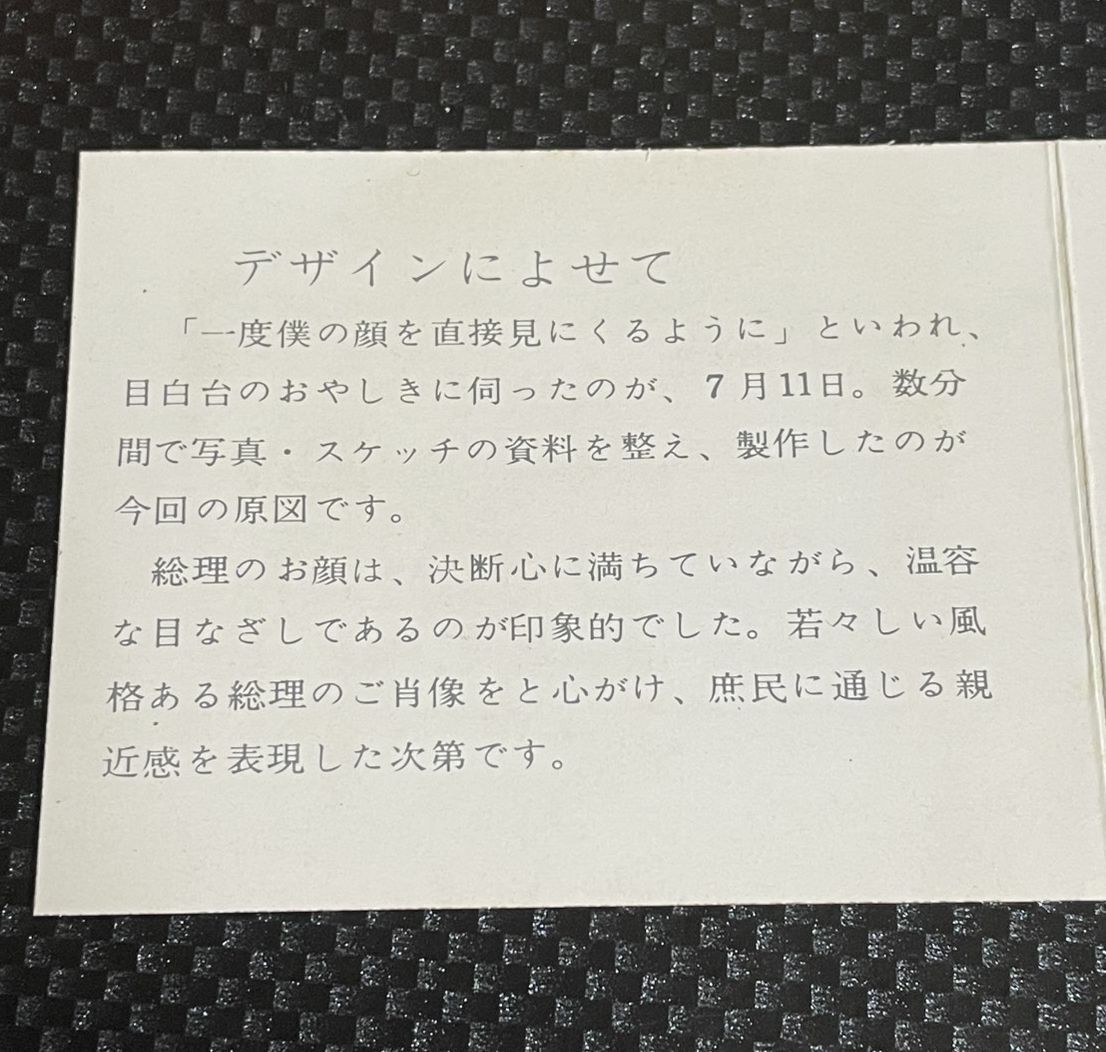 デザインによせて
「一度僕の顔を直接見にくるように」といわれ、
目白台のおやしきに伺ったのが、7月11日。数分
間で写真・スケッチの資料を整え、製作したのが
今回の原図です。
総理のお顔は、決断心に満ちていながら、温容
な目なざしであるのが印象的でした。若々しい風
格ある総理のご肖像をと心がけ、庶民に通じる親
近感を表現した次第です。